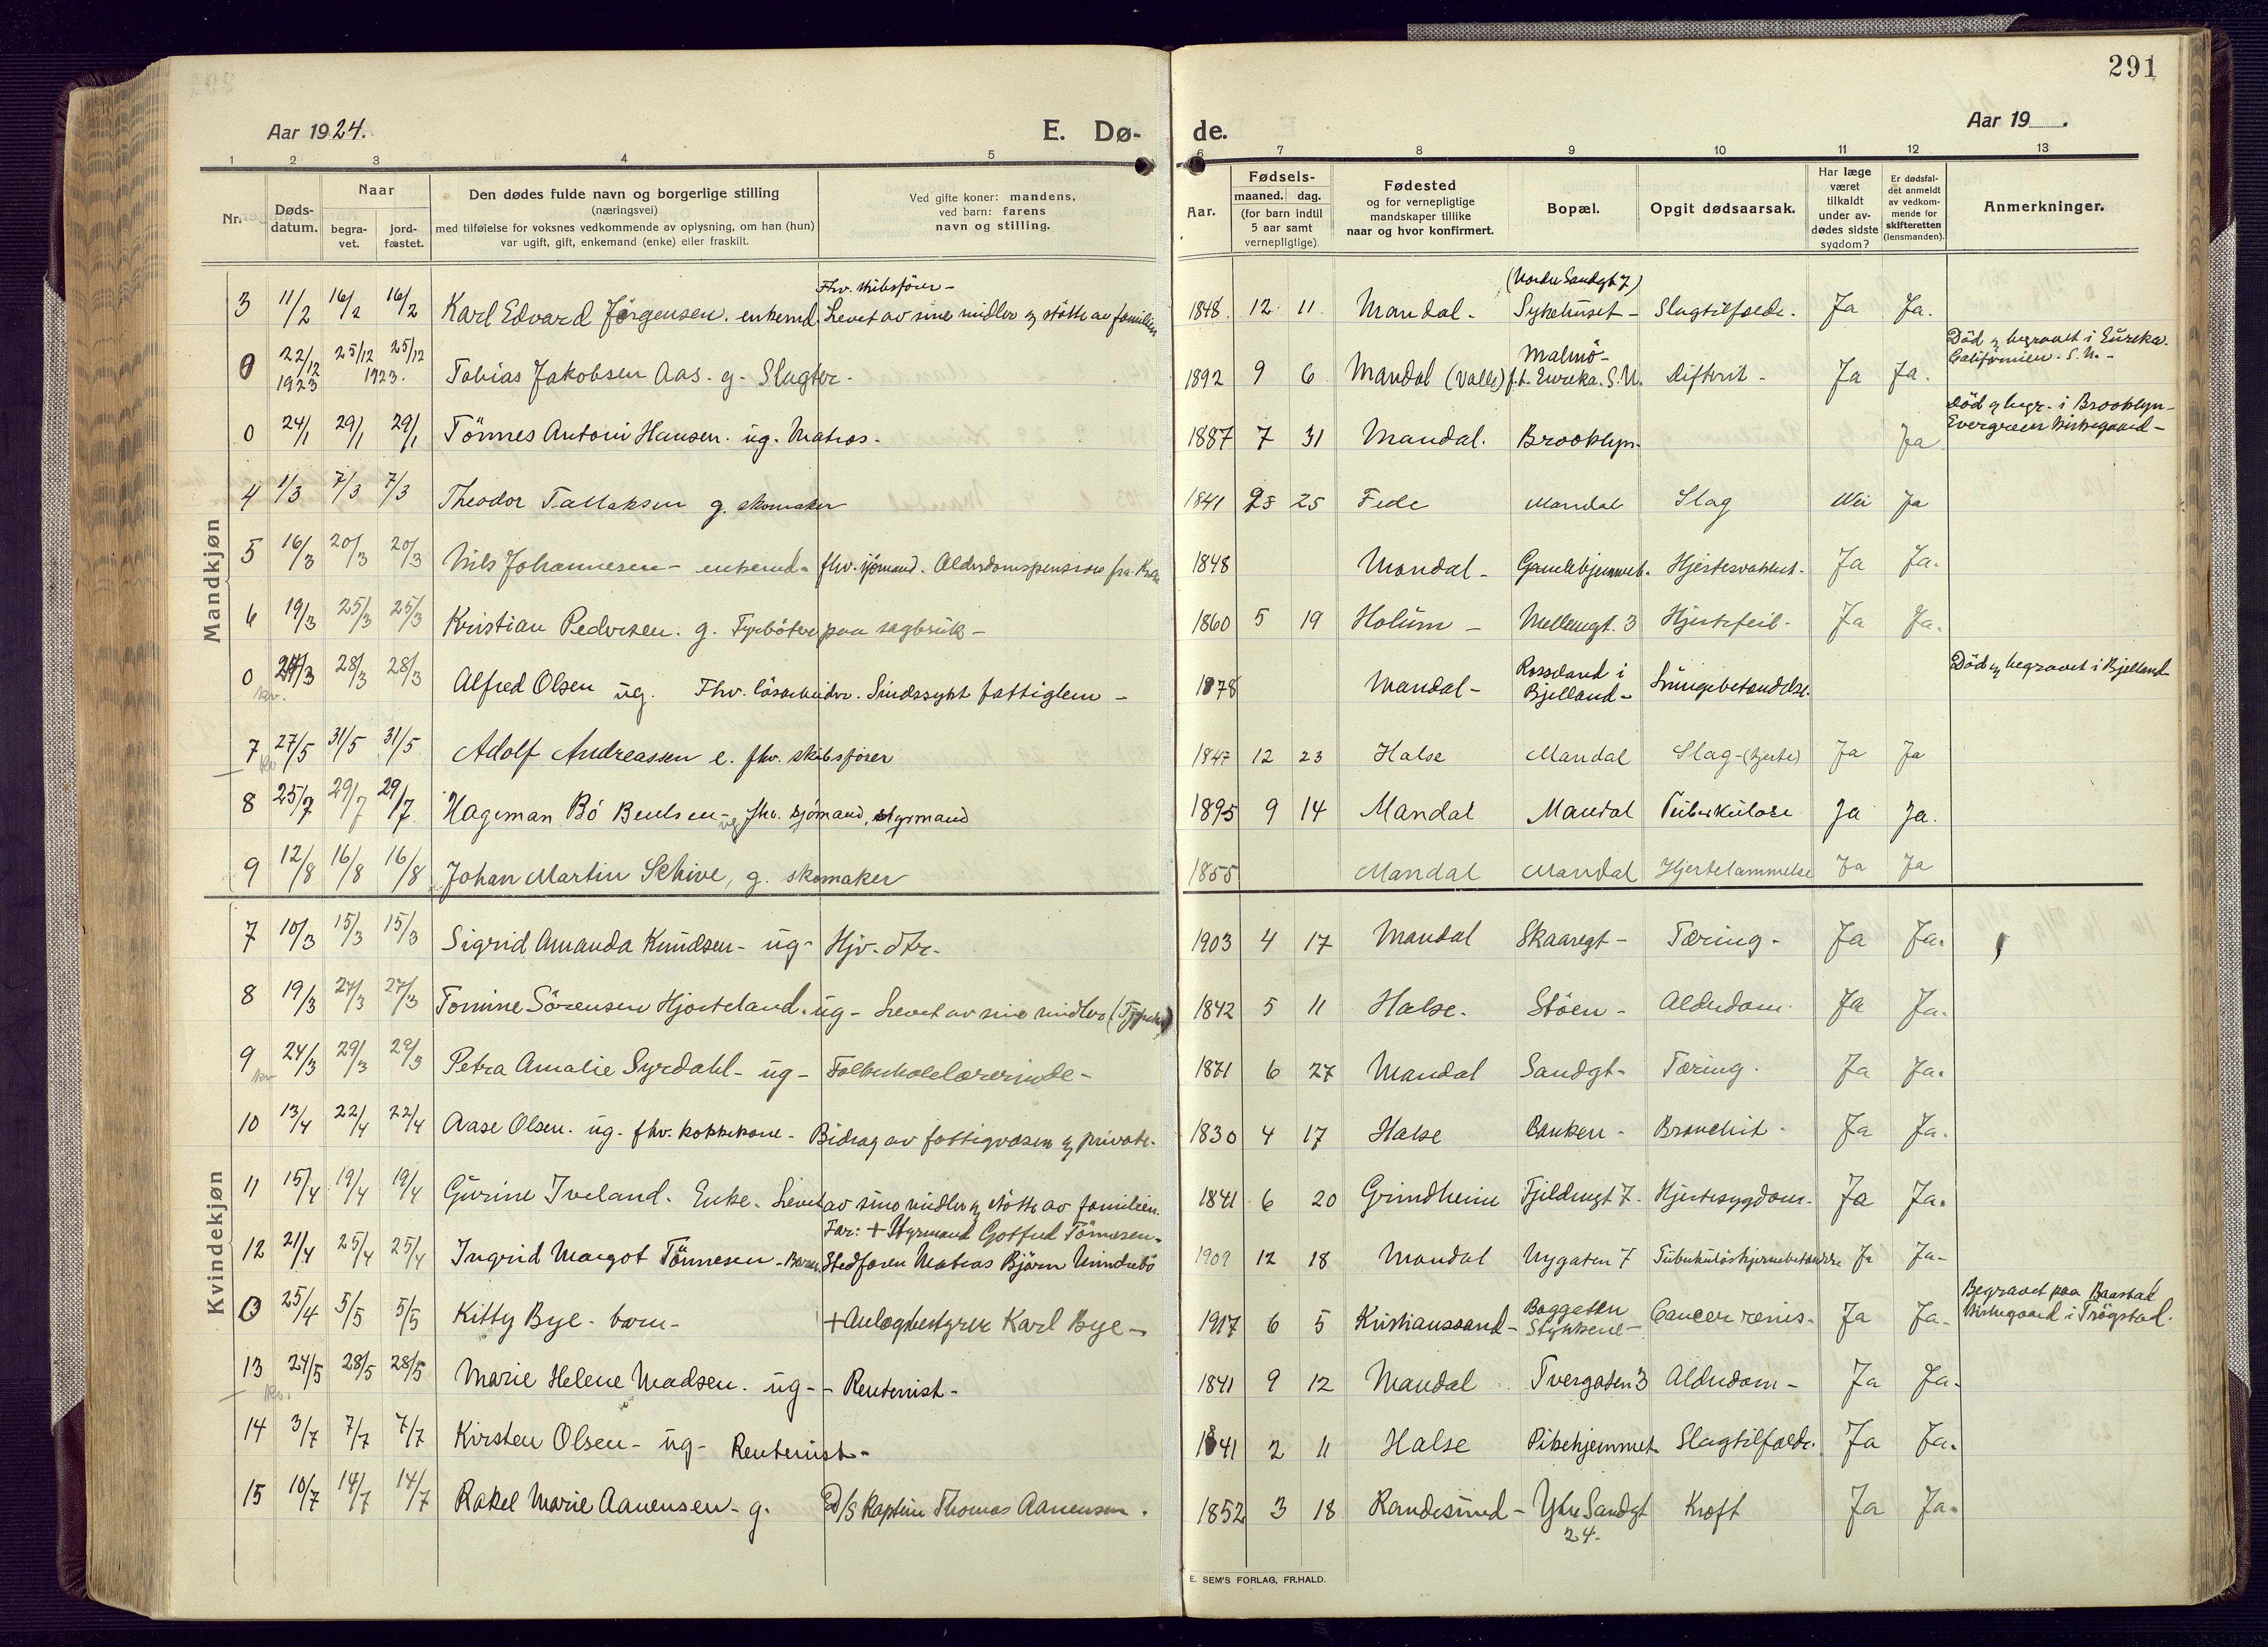 291
Aar 1924.
E. Dø-
de.
Aar 19__.
1 2 3 4 5 6 7 8 9 10 11 12 13
Nr.
Døds-
datum.
Naar
begra-
vet.
jord-
fæstet.
Den dødes fulde navn og borgerlige stilling
(næringsvei)
med tilføielse for voksnes vedkommende av oplysning, om han (hun)
var ugift, gift, enkemand (enke) eller fraskilt.
Ved gifte koner: mandens,
ved barn: farens
navn og stilling.
Aar.
Fødsels-
maaned. dag.
(for barn indtil
5 aar samt
vernepligtige).
Fødested
og for vernepligtige
mandskaper tillike
naar og hvor konfirmert.
Bopæl.
Opgit dødsaarsak.
Har læge
været
tilkaldt
under av-
dødes sidste
sygdom?
Er dødsfal-
det anmeldt
av vedkom-
mende for
skifteretten
(lensmanden).
Anmerkninger.
Mandkjøn
Fhv. skibsförer - (Nordre Sandgt 7)
3 11/2 16/2 16/2 Karl Edvard Jörgensen. enkemd. Levet av sine midler og stötte av familien 1848 12 11 Mandal - Sykehuset - Slagtilfælde. Ja Ja.
0 22/12 1923 25/12 25/12 1923. Tobias Jakobsen Aas. g. Slagter. 1892 9 6 Mandal (Valle) Malmö - f.t. Eureka. S.U. Difterit - Ja Ja. Död og begravet i Eureka. Californien. S.U. -
0 24/1 29/1 29/1 Tönnes Antoni Hansen. ug. Matros. 1887 7 31 Mandal. Brooklyn. Ja Död og begr. i Brooklyn - Evergreen Kirkegaard -
4 1/3 7/3 7/3 Theodor Tallaksen g. skomaker 1841 25 Fede Mandal Slag Nei Ja
5 16/3 20/3 20/3 Nils Johannesen - enkemd - fhv. sjömand. Alderdomspension fra 1848 Mandal - Gamlehjemmet. Hjertesvakhet. Ja Ja.
6 19/3 25/3 25/3 Kristian Pedersen. g. Fyrböter paa sagbruk - 1860 5 19 Holum - Mellemgt. 3 Hjertefeil. Ja Ja.
0 28/3 28/3 Alfred Olsen ug. Fhv. lösarbeider. Sindssykt fattiglem - 1878 Mandal - Rossland i Bjelland - Lungebetændelse. Död og begravet i Bjelland
7 27/5 31/5 31/5 Adolf Andreassen e. fhv. skibsförer 1847 12 23 Halse Mandal Slag - (hjerte) Ja Ja
8 25/7 29/7 29/7 Hageman Bö Bentsen ug fhv. sjömand, styrmand 1895 9 14 Mandal Mandal Tuberkulose Ja Ja.
9 12/8 16/8 16/8 Johan Martin Schive, g. skomaker 1855 Mandal Mandal Hjertelammelse Ja Ja
Kvindekjøn
7 10/3 15/3 15/3 Sigrid Amanda Knudsen - ug - Hjv. dtr. 1903 4 17 Mandal Skaaregt - Tæring - Ja Ja.
8 19/3 27/3 27/3 Tomine Sörensen Hjorteland. ug - Levet av sine midler 1842 5 11 Halse. Stöen - Alderdom. Ja Ja.
9 24/3 29/3 29/3 Petra Amalie Syrdahl - ug - Folkeskolelærerinde - 1871 6 27 Mandal Sandgt - Tæring. Ja Ja.
10 13/4 22/4 22/4 Aase Olsen. ug. fhv. kokkekone - Bidrag av fattigvæsen og private. 1830 4 17 Halse Banken - Bronchit. Ja Ja.
11 15/4 19/4 19/4 Gurine Iveland. Enke. Levet av sine midler og stötte av familien. 1841 6 20 Grindheim Fjeldengt 7. Hjertesygdom. Ja Ja.
Far: + Styrmand Gotfred Tönnesen.
12 21/4 25/4 25/4 Ingrid Margot Tönnesen - Barn. Stedfaren Matros Björn Mindrebö 1909 12 18 Mandal Nygaten 7 Tuberkulös hjernebetændelse Ja Ja -
0 25/4 5/5 5/5 Kitty Bye - barn - + Anlægbestyrer Karl Bye - 1917 6 5 Kristianssand - Baggatten Stykkene - Cancer renis - Ja Ja - Begravet paa Baastad Kirkegaard i Trögstad.
13 24/5 28/5 28/5 Marie Helene Madsen. ug - - Rentenist - 1841 9 12 Mandal Tvergaten 3 Alderdom - Ja Ja -
14 3/7 7/7 7/7 Kirsten Olsen - ug - Rentenist - 1841 2 11 Halse Pikehjemmet Slagtilfælde. Ja Ja.
15 10/7 14/7 14/7 Rakel Marie Aanensen - g. D/S Kaptein Thomas Aanensen. 1852 3 18 Randesund - Ytre Sandgt 24. Kræft Ja Ja.
E. SEM'S FORLAG, FR.HALD.